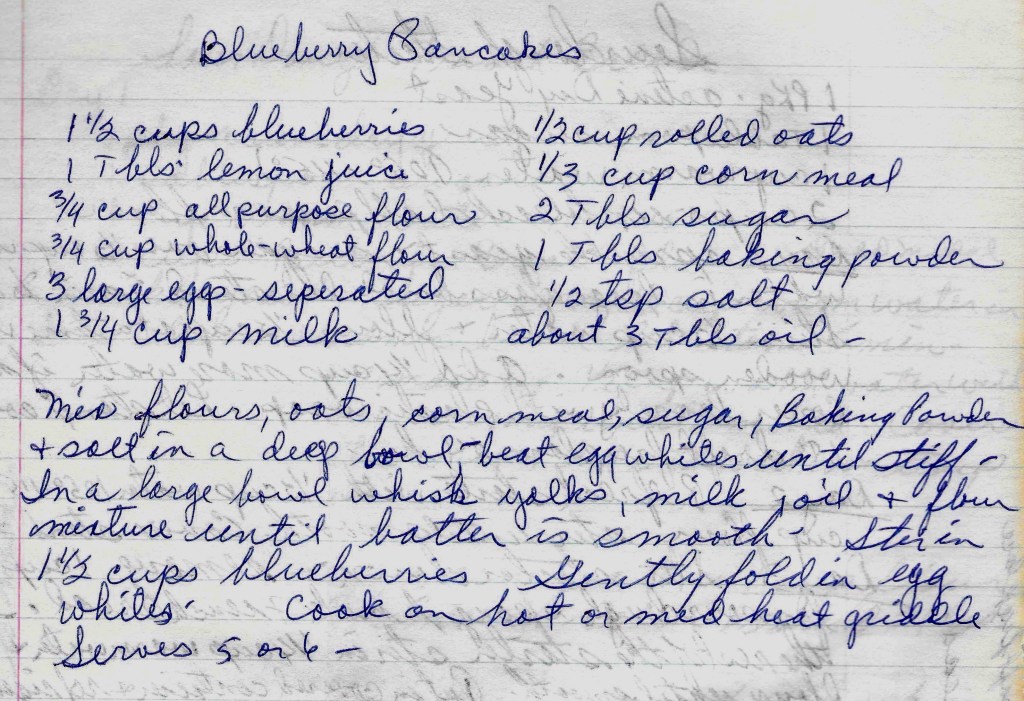 Blueberry Pancakes
1 1/2 cups blueberries
1 Tbls lemon juice
3/4 cup all purpose flour
3/4 cup whole-wheat flour
3 large eggs - seperated
1 3/4 cup milk
1/2 cup rolled oats
1/3 cup corn meal
2 Tbls sugar
1 Tbls baking powder
1/2 tsp salt
about 3 Tbls oil -
Mix flours, oats, corn meal, sugar, Baking Powder
+ salt in a deep bowl - beat egg whites until stiff -
In a large bowl whisk yolks, milk, oil + flour
mixture until batter is smooth - Stir in
1 1/2 cups blueberries Gently fold in egg
whites. Cook on hot or med heat griddle
Serves 5 or 6 -